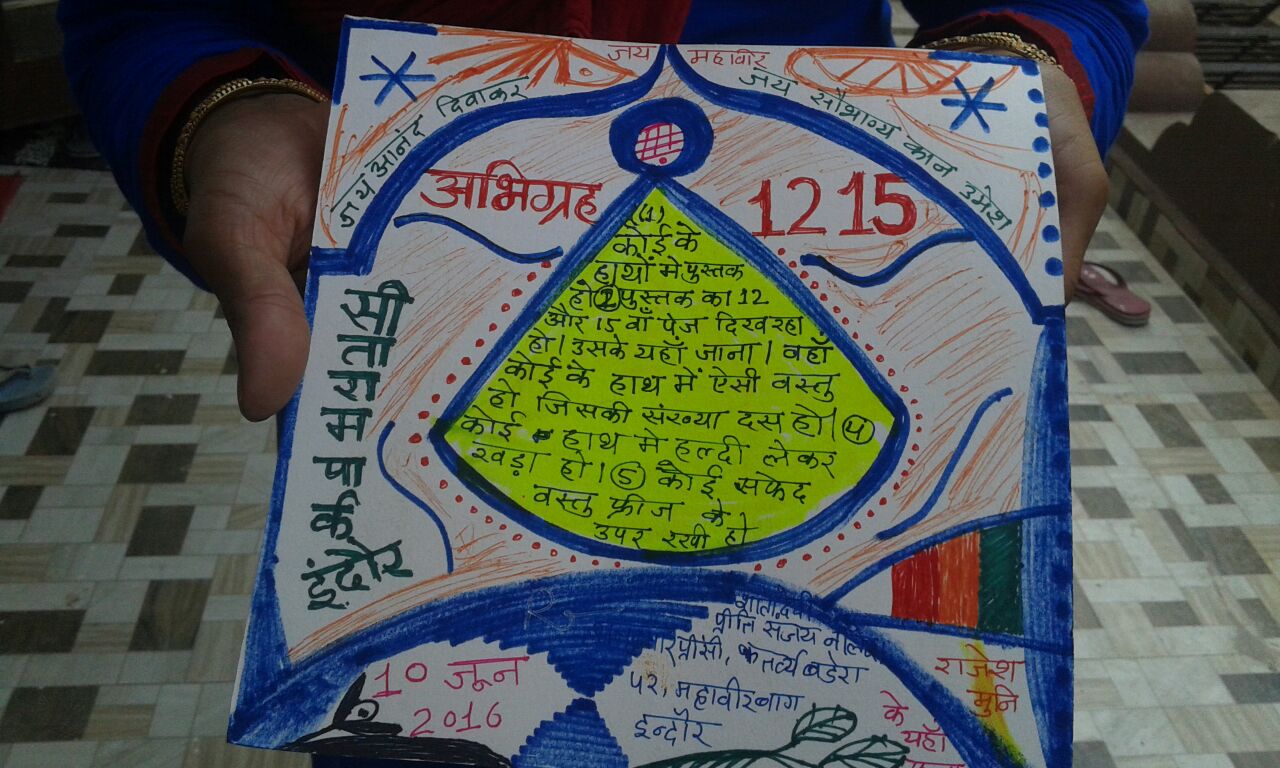 जय महावीर
जय आनंद दिवाकर
जय सौभाग्य कान उमेश
अभिग्रह
1215
(1)
कोई के
हाथों मे पुस्तक
हो (2) पुस्तक का 12
और 15 वाँ पेज दिख रहा
हो। उसके यहाँ जाना। वहाँ
कोई के हाथ में ऐसी वस्तु
हो जिसकी संख्या दस हो। (4)
कोई हाथ मे हल्दी लेकर
खड़ा हो। (5) कोई सफेद
वस्तु फ्रीज के
उपर रखी हो
सीतामऊ
इंदौर
10 जून
2016
प्रीति संजय
कर्तव्य बडेरा
महावीर बाग
इन्दौर
राजेश
मुनि
के
यहाँ